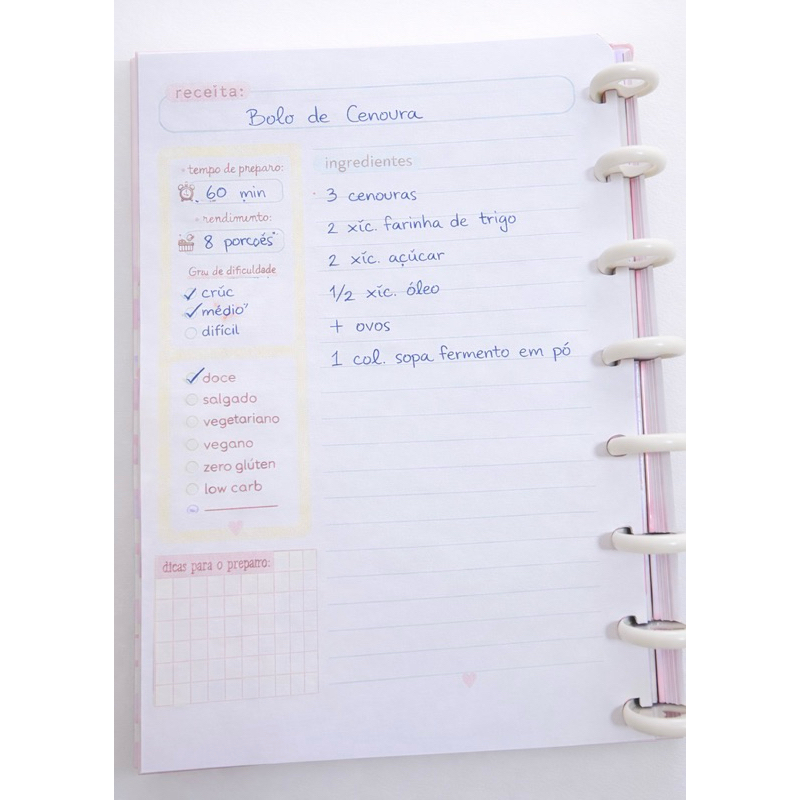 receita:
Bolo de Cenoura
+ tempo de preparo:
60 min
+ rendimento:
8 porcoés
Grau de dificuldade
crúc
médio
difícil
doce
salgado
vegetariano
vegano
zero glúten
low carb
dicas para o preparro:
ingredientes
3 cenouras
2 xíc. farinha de trigo
2 xíc. açúcar
1/2 xíc. óleo
+ ovos
1 col. sopa fermento em pó